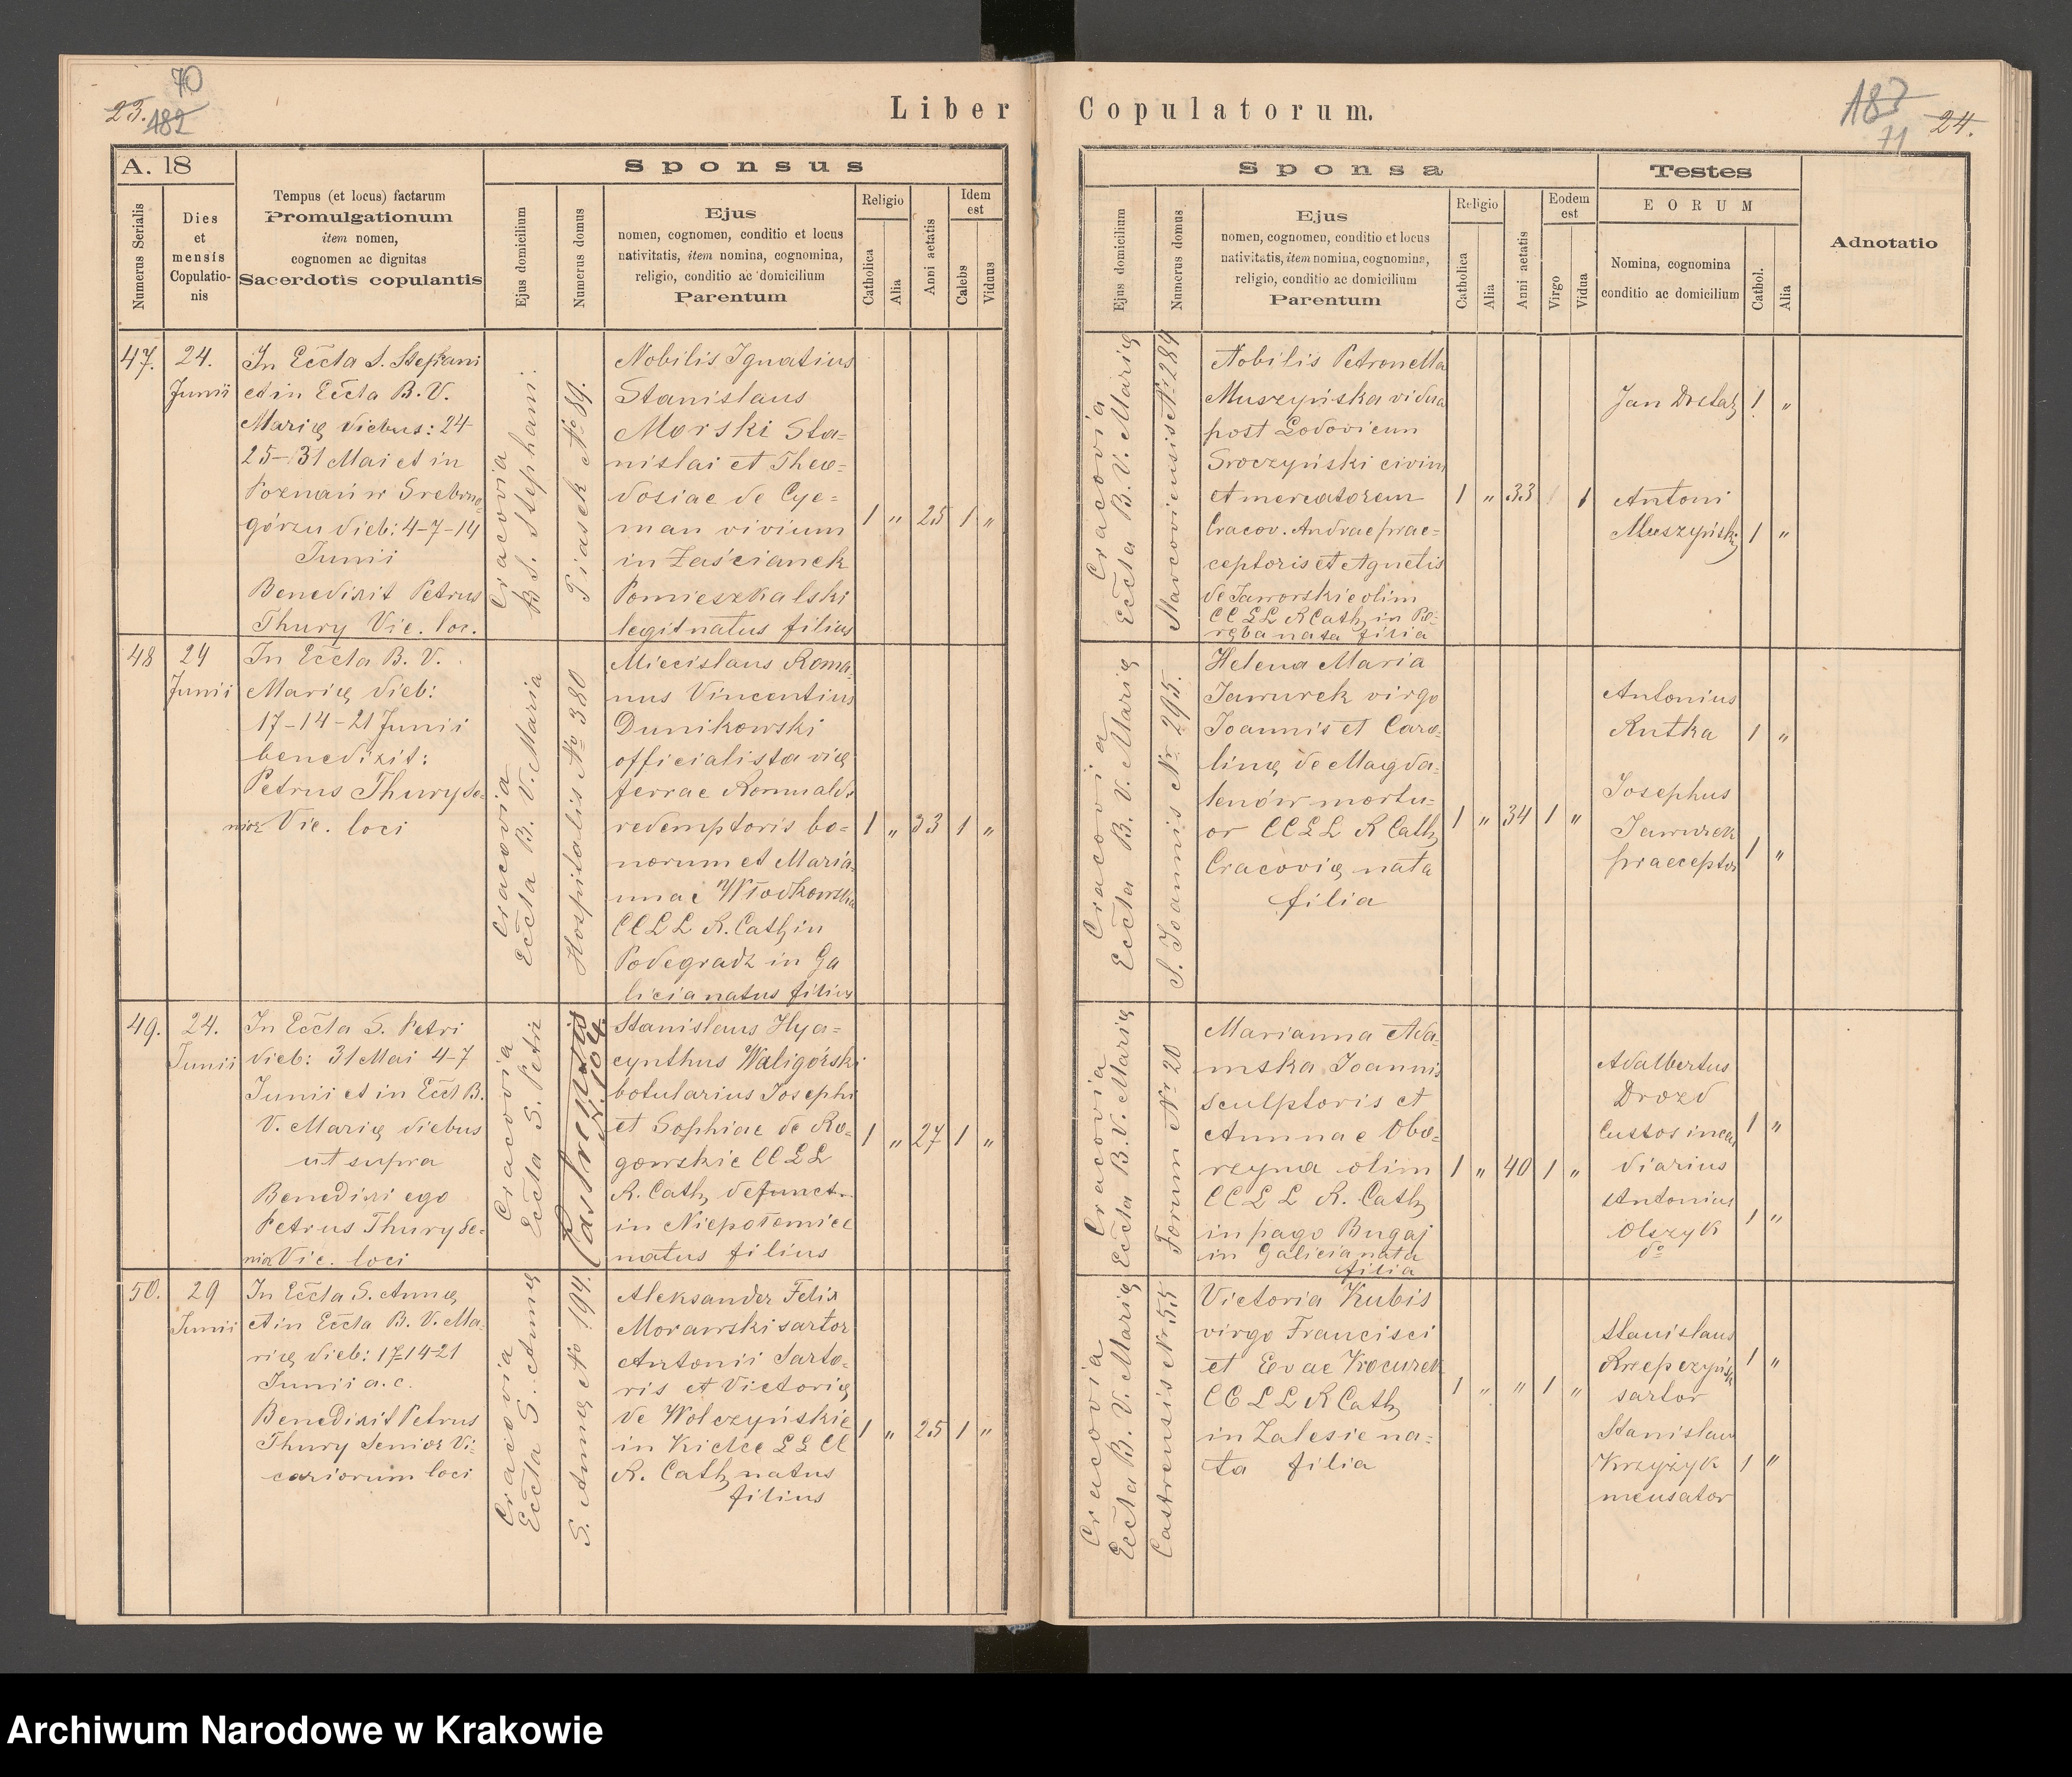 23.
70
182
Liber Copulatorum.
187
71
24.
A. 18
Numerus Serialis
Dies
et
mensis
Copulatio-
nis
Tempus (et locus) factarum
Promulgationum
item nomen,
cognomen ac dignitas
Sacerdotis copulantis
Sponsus
Ejus domicilium
Numerus domus
Ejus
nomen, cognomen, conditio et locus
nativitatis, item nomina, cognomina,
religio, conditio ac domicilium
Parentum
Religio
Catholica
Alia
Anni aetatis
Idem
est
Calebs
Viduus
Sponsa
Ejus domicilium
Numerus domus
Ejus
nomen, cognomen, conditio et locus
nativitatis, item nomina, cognomina,
religio, conditio ac domicilium
Parentum
Religio
Catholica
Alia
Anni aetatis
Eodem
est
Virgo
Vidua
Testes
EORUM
Nomina, cognomina
conditio ac domicilium
Cathol.
Alia
Adnotatio
47.
24.
Junii
In Eccta S. Stephani
et in Eccta B. V.
Marię diebus: 24
25-31 Mai et in
Poznań w Srebrno-
górzu dieb: 4-7-14
Junii
Benedixit Petrus
Thury Vic. loc.
Cracovia
B S. Stephani:
Piasek No 89.
Nobilis Ignatius
Stanislaus
Morski Sta=
nislai et Theo=
dosiae de Cye=
man vivium
in Zaścianek
Pomieszkalski
legit natus filius
1 " 25 1 "
Cracovia
Eccta B. V. Marię
Marcoviensis Nr 284
Nobilis Petronella
Muszyńska vidua
post Lodovicum
Sroczyński civim
et mercatorem
Cracov. Andrae prae=
ceptoris et Agnetis
de Jaworskie olim
CC LL R Cath, in Po-
ręba nata filia
1 " 33 1
Jan
1 "
Antoni
Muszyński
1 "
48
24
Junii
In Eccta B. V.
Marię dieb:
17-14-21 Junii
benedixit:
Petrus Thury Se-
nior Vic. loci
Cracovia
Eccta B. V. Maria
Hospitalis No 380
Miecislaus Roma-
nus Vincentius
Dunikowski
officialista vię
ferrae Romualdi
redemptoris bo=
norum et Maria-
nnae Włodkowska
CCLL R. Cath, in
Podegradz in Ga
licia natus filius
1 " 33 1 "
Cracovia
Eccta B. V. Marię
S. Joannis Nr 295.
Helena Maria
Jawurek virgo
Joannis et Caro-
linę de Magda-
lenów mortu=
or CCLL R Cath,
Cracovię nata
filia
1 " 34 1 "
Antonius
Rutka
1 "
Josephus
Jawurek
praeceptor
1 "
49.
24.
Junii
In Eccta S. Petri
dieb: 31 Mai 4-7
Junii et in Ecct B.
V. Marię diebus
ut supra
Benedixi ego
Petrus Thury Se-
nior Vic. loci
Cracovia
Eccta S. Petri
Castrensis
N. 104.
Stanislaus Hya=
cynthus Waligórski
botularius Josephi
et Sophiae de Ro-
gowskie CC LL
R. Cath, defunct.
in Niepołomice
natus filius
1 " 27 1 "
Cracovia
Eccta B. V. Marię
Forum Nr 20
Marianna Ada-
mska Joannis
sculptoris et
Annae Obo-
reyna olim
CCLL R. Cath,
in pago Bugaj
in Galicia nata
filia
1 " 40 1 "
Adalbertus
Drozd
Custos incen
diarius
1 "
Antonius
Olszyk
do
1 "
50.
29
Junii
In Eccta S. Annę,
et in Eccta B. V. Ma-
rię dieb: 17-14-21
Junii a. c.
Benedixit Petrus
Thury Senior Vi-
cariorum loci
Cracovia
Eccta S. Annę
S. Annę No 194.
Aleksander Felix
Morawski sartor
Antonii Sarto-
ris et Victorię
de Wolczyńskie
in Kielce LL CC
R. Cath, natus
filius
1 " 25 1 "
Cracovia
Eccta B. V. Marię
Castrensis Nr 55
Victoria Kubis
virgo Francisci
et Evae Kocurek
CC LL R Cath,
in Zalesie na=
ta filia
1 " " 1 "
Stanislaus
Krzepczyński
sartor
1 "
Stanislaus
Krzyżyk
mensator
1 "
Archiwum Narodowe w Krakowie